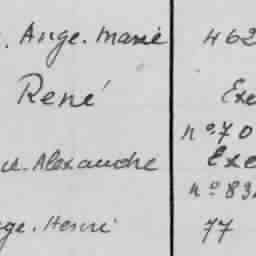 . Ange. Marie 462
René Exe
n° 70
u. Alexandre Exe
n° 83
ge. Henri 77